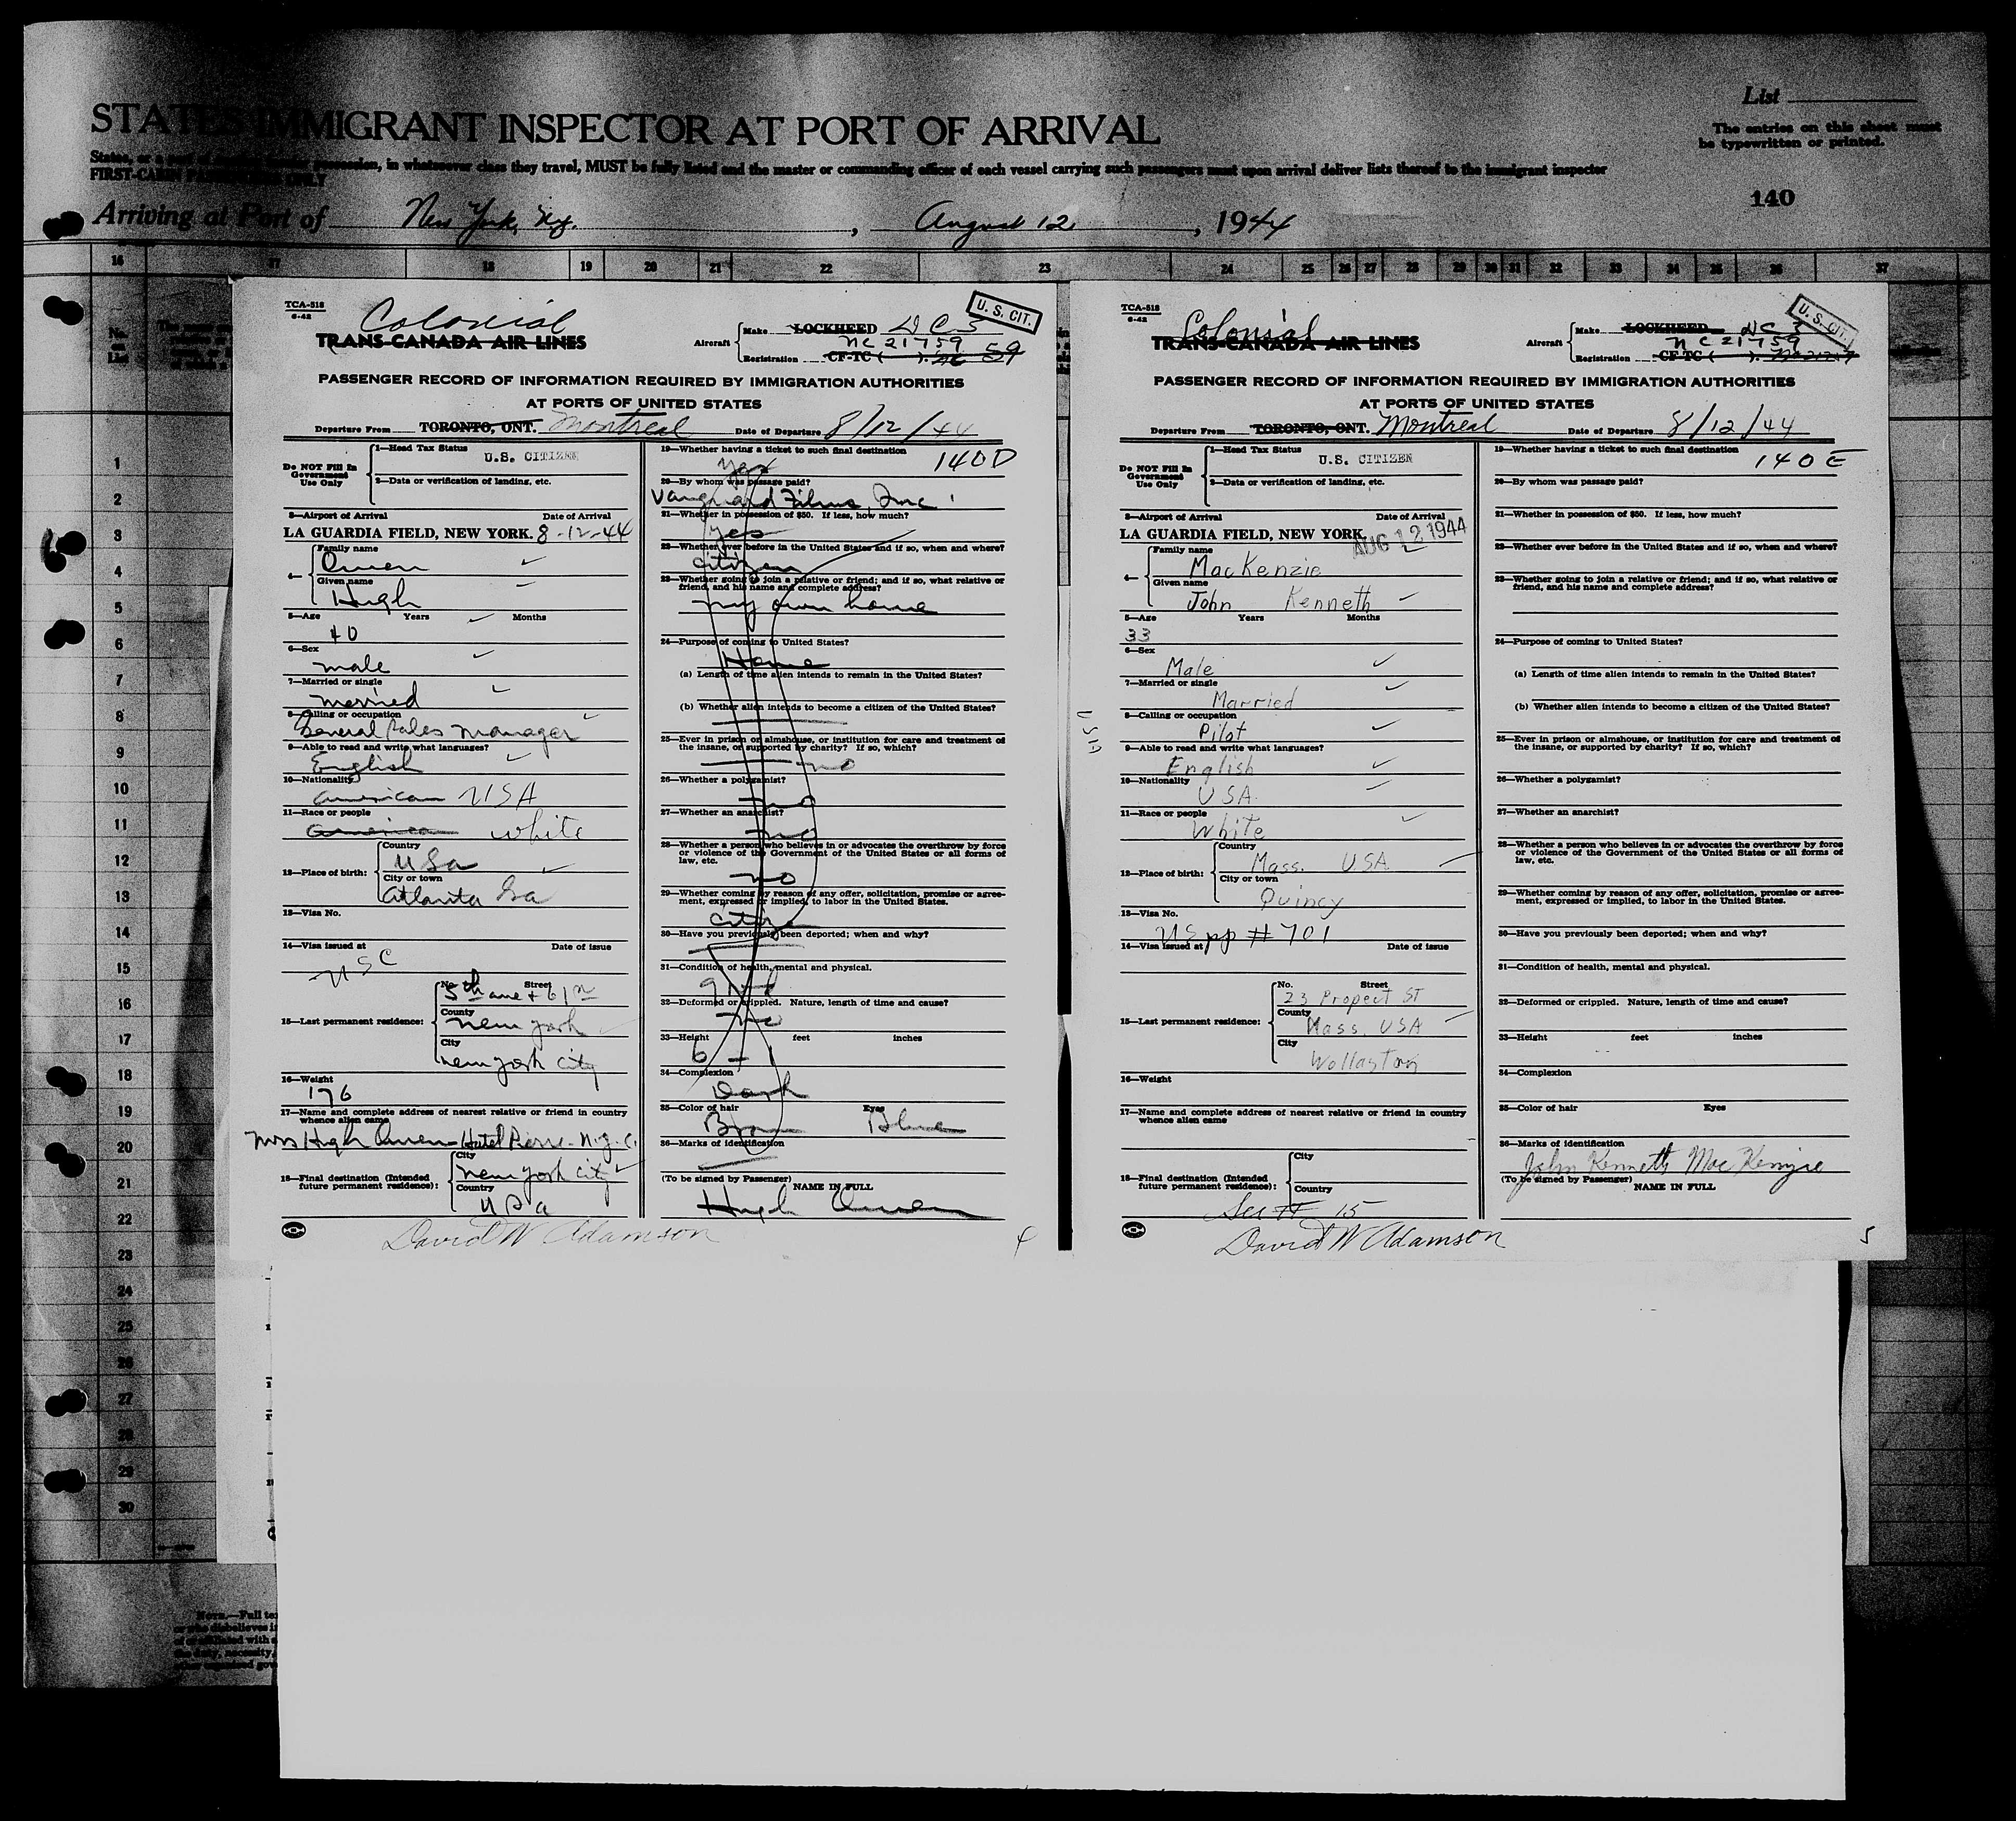 STATES IMMIGRANT INSPECTOR AT PORT OF ARRIVAL
List
The entries on this sheet must
be typewritten or printed.
in whatsoever class they travel, MUST be fully listed and the master or commanding officer of each vessel carrying such passengers must upon arrival deliver lists thereof to the immigrant inspector
FIRST-CABIN PASSENGERS ONLY
140
Arriving at Port of New York, N.Y., August 12, 1944
16 17 18 19 20 21 22 23 24 25 26 27 28 29 30 31 32 33 34 35 36 37
No. on List
1
2
3
4
5
6
7
8
9
10
11
12
13
14
15
16
17
18
19
20
21
22
23
24
25
26
27
28
29
30
TCA-518
6-42
Colonial
TRANS-CANADA AIR LINES
U. S. CIT.
Aircraft
Make LOCKHEED DC3
NC 21759
Registration CF-TC ( ). NC 59
PASSENGER RECORD OF INFORMATION REQUIRED BY IMMIGRATION AUTHORITIES
AT PORTS OF UNITED STATES
Departure From TORONTO, ONT. Montreal Date of Departure 8/12/44
Do NOT Fill In
Government
Use Only
1—Head Tax Status
U.S. CITIZEN
2—Data or verification of landing, etc.
3—Airport of Arrival Date of Arrival
LA GUARDIA FIELD, NEW YORK. 8-12-44
4—
Family name
Owen
Given name
Hugh
5—Age Years Months
40
6—Sex
male
7—Married or single
married
8—Calling or occupation
General Sales Manager
9—Able to read and write what languages?
English
10—Nationality
American USA
11—Race or people
America white
12—Place of birth:
Country
USa
City or town
Atlanta Ga
13—Visa No.
14—Visa issued at Date of issue
USC
15—Last permanent residence:
No. Street
5th ave + 61st
County
New York
City
New York City
16—Weight
176
17—Name and complete address of nearest relative or friend in country
whence alien came
Mrs Hugh Owen Hotel Pierre - N.Y.C.
18—Final destination (Intended
future permanent residence):
City
New York City
Country
USa
19—Whether having a ticket to such final destination
yes 140D
20—By whom was passage paid?
Vanguard Films, Inc.
21—Whether in possession of $50. If less, how much?
yes
22—Whether ever before in the United States and if so, when and where?
Citizen
23—Whether going to join a relative or friend; and if so, what relative or
friend, and his name and complete address?
my own home
24—Purpose of coming to United States?
Home
(a) Length of time alien intends to remain in the United States?
(b) Whether alien intends to become a citizen of the United States?
25—Ever in prison or almshouse, or institution for care and treatment of
the insane, or supported by charity? If so, which?
no
26—Whether a polygamist?
no
27—Whether an anarchist?
no
28—Whether a person who believes in or advocates the overthrow by force
or violence of the Government of the United States or all forms of
law, etc.
no
29—Whether coming by reason of any offer, solicitation, promise or agree-
ment, expressed or implied, to labor in the United States.
Citizen
30—Have you previously been deported; when and why?
31—Condition of health, mental and physical.
32—Deformed or crippled. Nature, length of time and cause?
no
33—Height feet inches
6 - 1
34—Complexion
Dark
35—Color of hair Eyes
Brown Blue
36—Marks of identification
(To be signed by Passenger)
NAME IN FULL
Hugh Owen
David W Adamson
4
TCA-518
6-42
Colonial
TRANS-CANADA AIR LINES
U. S. CIT.
Aircraft
Make LOCKHEED DC 3
NC 21759
Registration CF-TC ( ).
PASSENGER RECORD OF INFORMATION REQUIRED BY IMMIGRATION AUTHORITIES
AT PORTS OF UNITED STATES
Departure From TORONTO, ONT. Montreal Date of Departure 8/12/44
Do NOT Fill In
Government
Use Only
1—Head Tax Status
U.S. CITIZEN
2—Data or verification of landing, etc.
3—Airport of Arrival Date of Arrival
LA GUARDIA FIELD, NEW YORK. AUG 12 1944
4—
Family name
MacKenzie
Given name
John Kenneth
5—Age Years Months
33
6—Sex
Male
7—Married or single
Married
8—Calling or occupation
Pilot
USA
9—Able to read and write what languages?
English
10—Nationality
USA
11—Race or people
White
12—Place of birth:
Country
Mass. USA
City or town
Quincy
13—Visa No.
US pp # 701
14—Visa issued at Date of issue
15—Last permanent residence:
No. Street
23 Propect ST
County
Mass. USA
City
Wollaston
16—Weight
17—Name and complete address of nearest relative or friend in country
whence alien came
18—Final destination (Intended
future permanent residence):
City
Country
See # 15
19—Whether having a ticket to such final destination
140 E
20—By whom was passage paid?
21—Whether in possession of $50. If less, how much?
22—Whether ever before in the United States and if so, when and where?
23—Whether going to join a relative or friend; and if so, what relative or
friend, and his name and complete address?
24—Purpose of coming to United States?
(a) Length of time alien intends to remain in the United States?
(b) Whether alien intends to become a citizen of the United States?
25—Ever in prison or almshouse, or institution for care and treatment of
the insane, or supported by charity? If so, which?
26—Whether a polygamist?
27—Whether an anarchist?
28—Whether a person who believes in or advocates the overthrow by force
or violence of the Government of the United States or all forms of
law, etc.
29—Whether coming by reason of any offer, solicitation, promise or agree-
ment, expressed or implied, to labor in the United States.
30—Have you previously been deported; when and why?
31—Condition of health, mental and physical.
32—Deformed or crippled. Nature, length of time and cause?
33—Height feet inches
34—Complexion
35—Color of hair Eyes
36—Marks of identification
John Kenneth MacKenzie
(To be signed by Passenger)
NAME IN FULL
David W Adamson
5
Note.—Full te